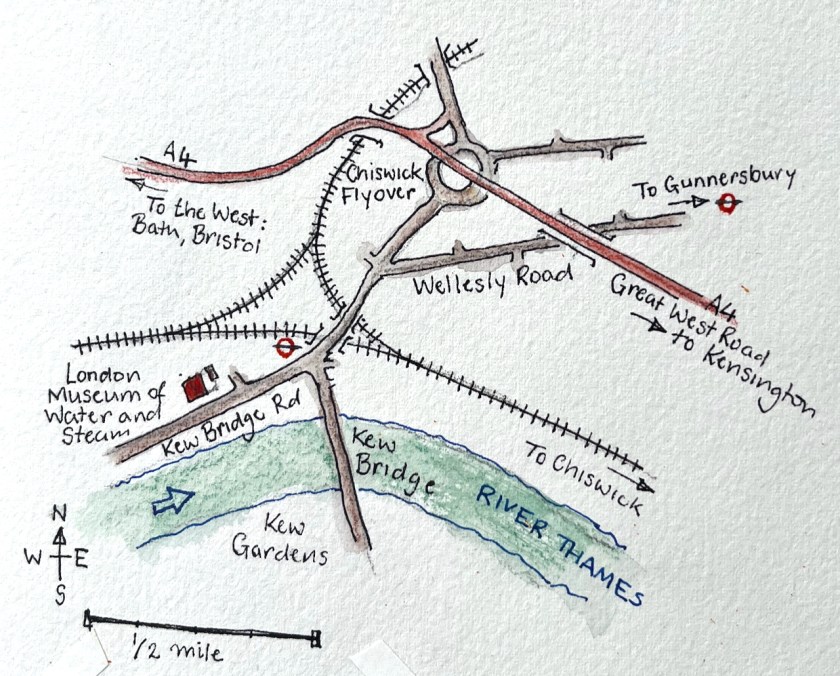 A4
Chiswick
Flyover
To the West:
Bath, Bristol
To Gunnersbury
Wellesly Road
A4
Great West Road
to Kensington
London
Museum of
Water and
Steam
Kew Bridge Rd
Kew
Bridge
To Chiswick
RIVER THAMES
Kew
Gardens
N
W E
S
1/2 mile